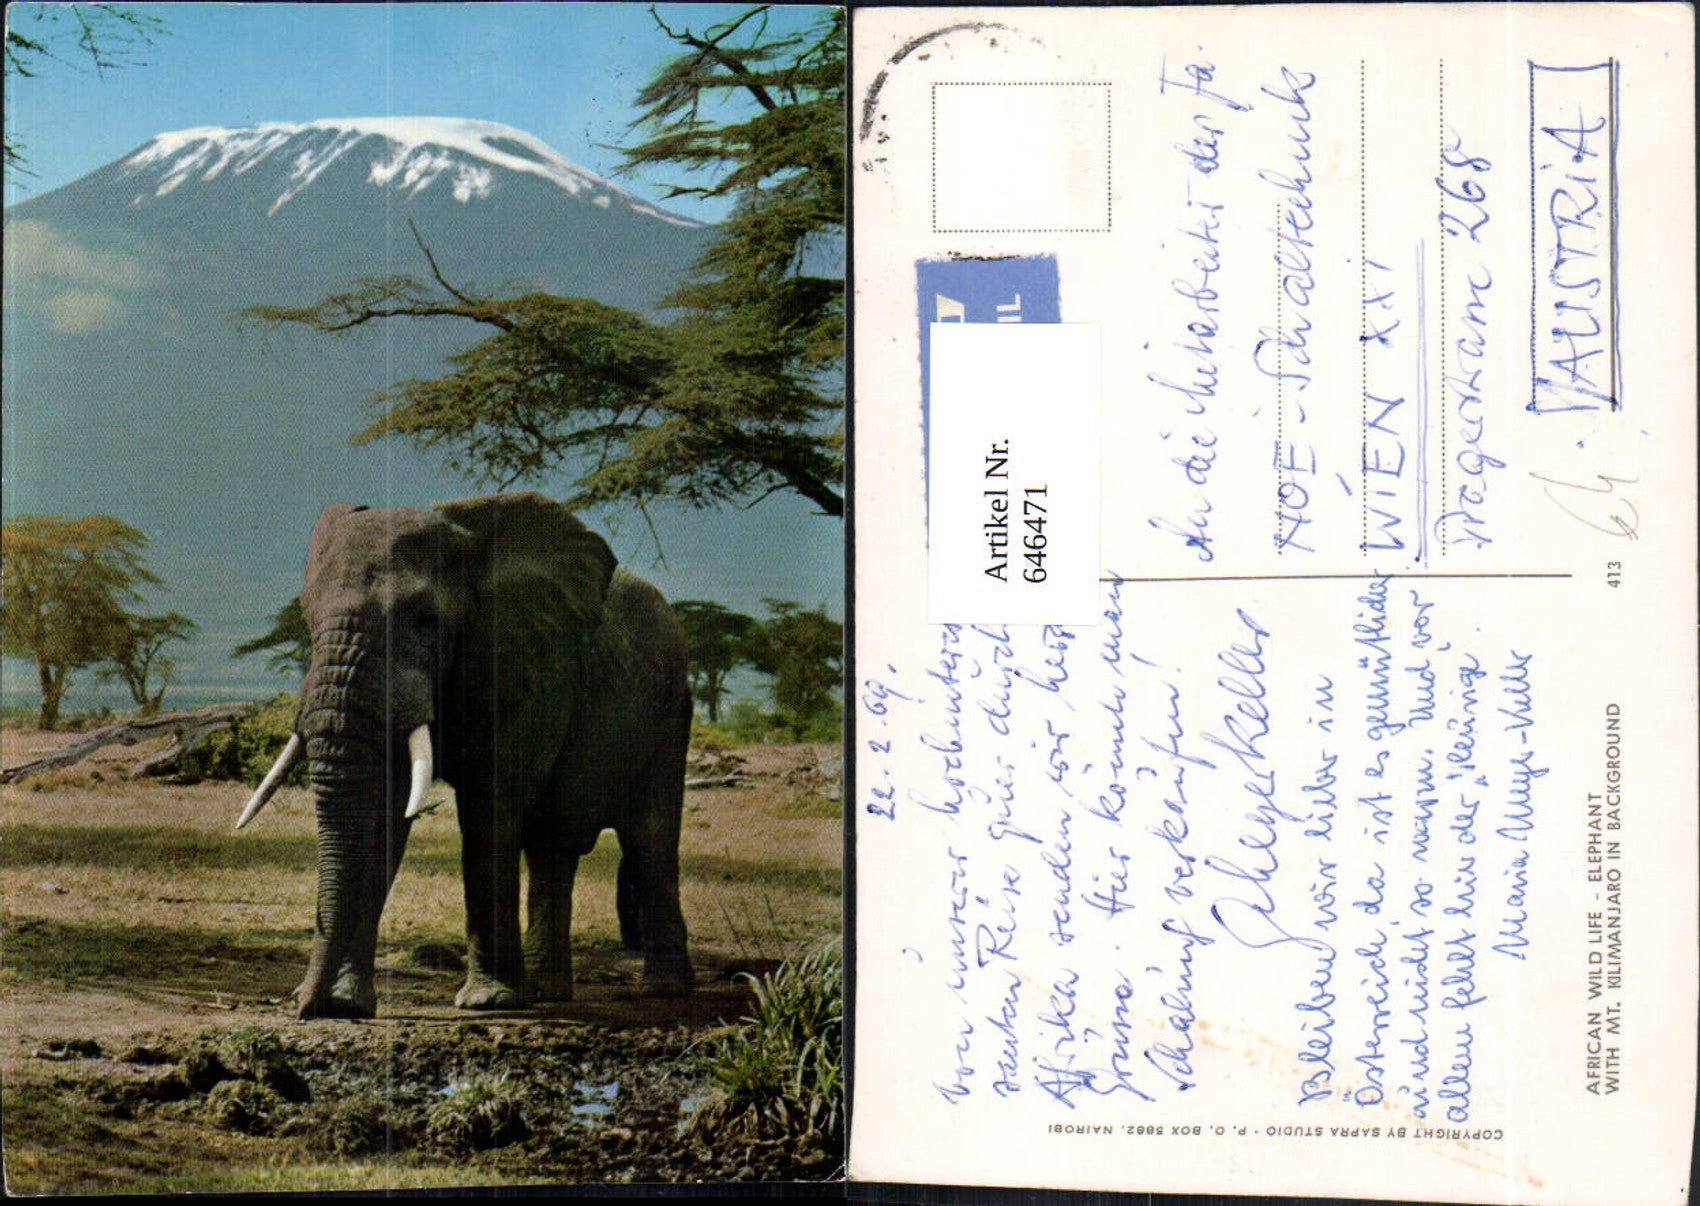 22.2.69.
Von unserer hochinteres
santen Reise quer durch
Afrika senden wir herz
Grüsse. Hier könnte man
Schaltungen verkaufen!
Bleiben wir lieber in
Österreich da ist es gemütlicher
und nicht so warm. Und vor
allem fehlt hier der "Heurige".
Maria
An die Mitarbeiter der Fa.
HOE-Schaltechnik
WIEN XXI
Wagramerstr 268
AUSTRIA
IL
Artikel Nr.
646471
413
AFRICAN WILD LIFE - ELEPHANT
WITH MT. KILIMANJARO IN BACKGROUND
COPYRIGHT BY SAPRA STUDIO · P. O. BOX 5882. NAIROBI